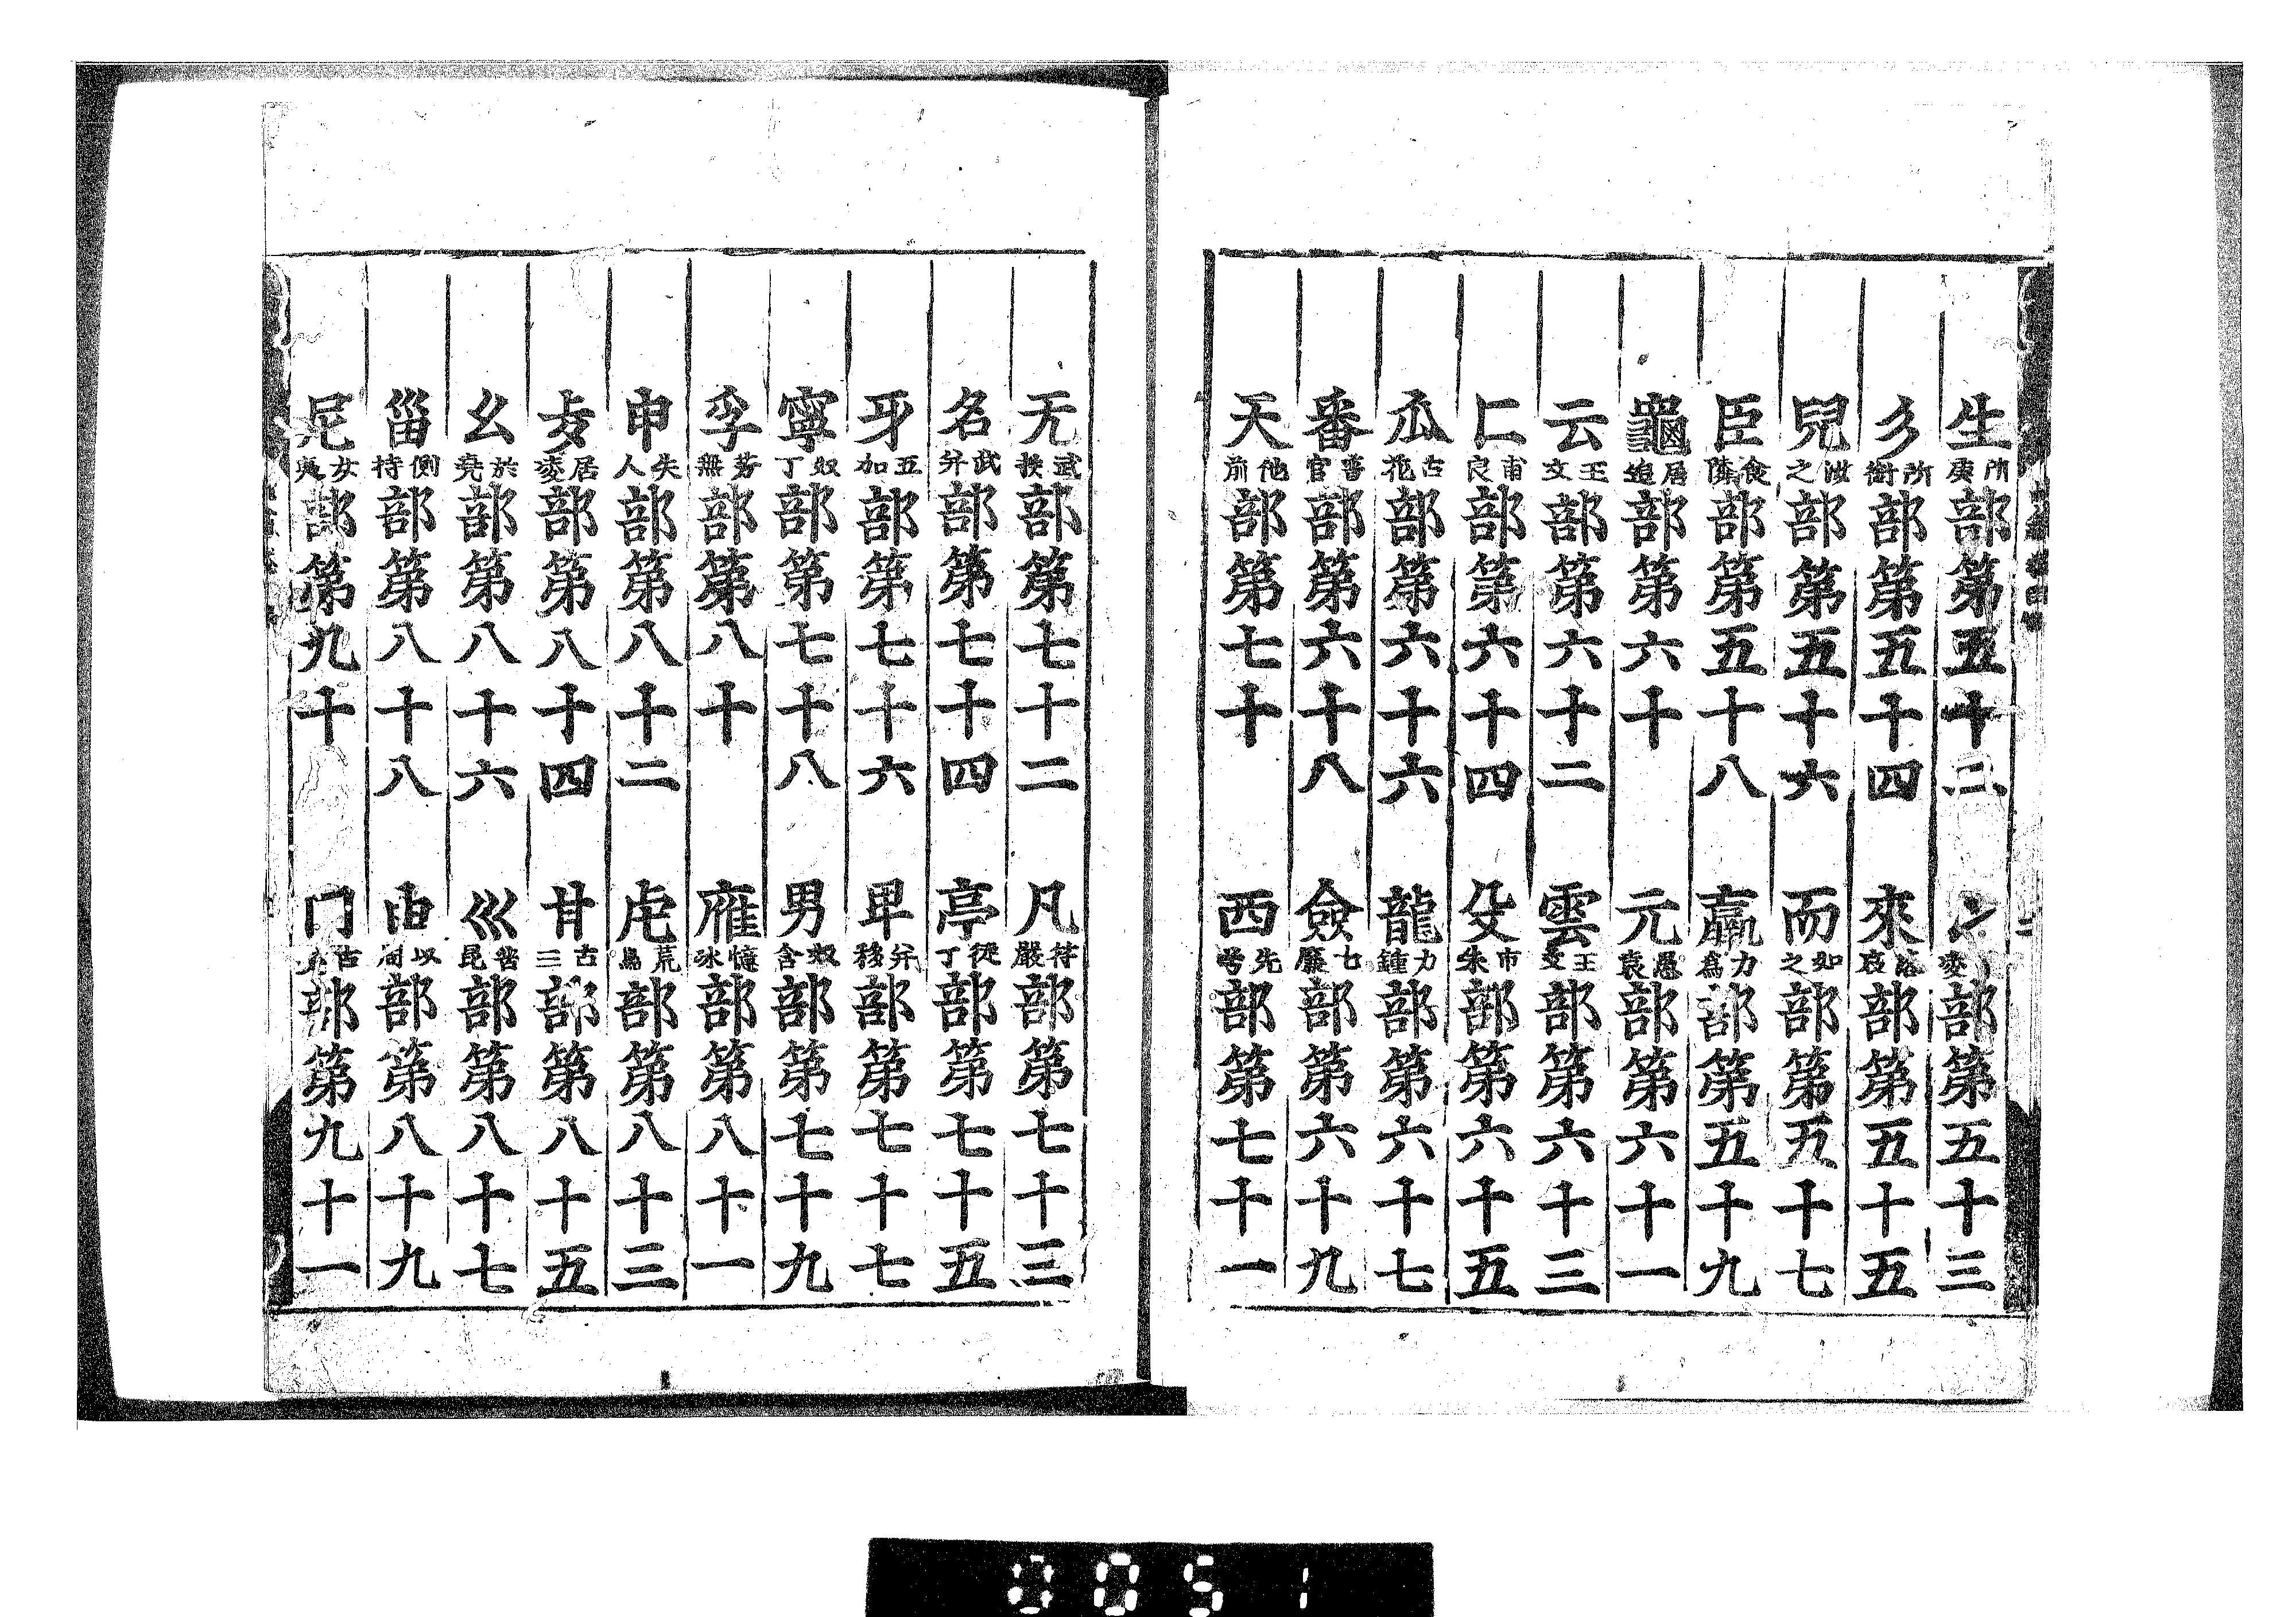 生所庚部第五十二　冫夌部第五十三
彡所銜部第五十四　來洛哀部第五十五
兒汝之部第五十六　而如之部第五十七
臣食隣部第五十八　羸力為部第五十九
龜居追部第六十　元愚袁部第六十一
云王文部第六十二　雲王文部第六十三
匚甫良部第六十四　殳市朱部第六十五
瓜古花部第六十六　龍力鍾部第六十七
番普官部第六十八　僉七廉部第六十九
天他前部第七十　西先兮部第七十一
无武扶部第七十二　凡符嚴部第七十三
名武并部第七十四　亭徒丁部第七十五
牙五加部第七十六　卑并移部第七十七
寧奴丁部第七十八　男奴含部第七十九
孚芳無部第八十　雁憶冰部第八十一
申失人部第八十二　虍荒烏部第八十三
夌居部第八十四　甘古三部第八十五
幺於堯部第八十六　巛部第八十七
甾側持部第八十八　由以周部第八十九
尼女夷部第九十　冂古部第九十一
0051